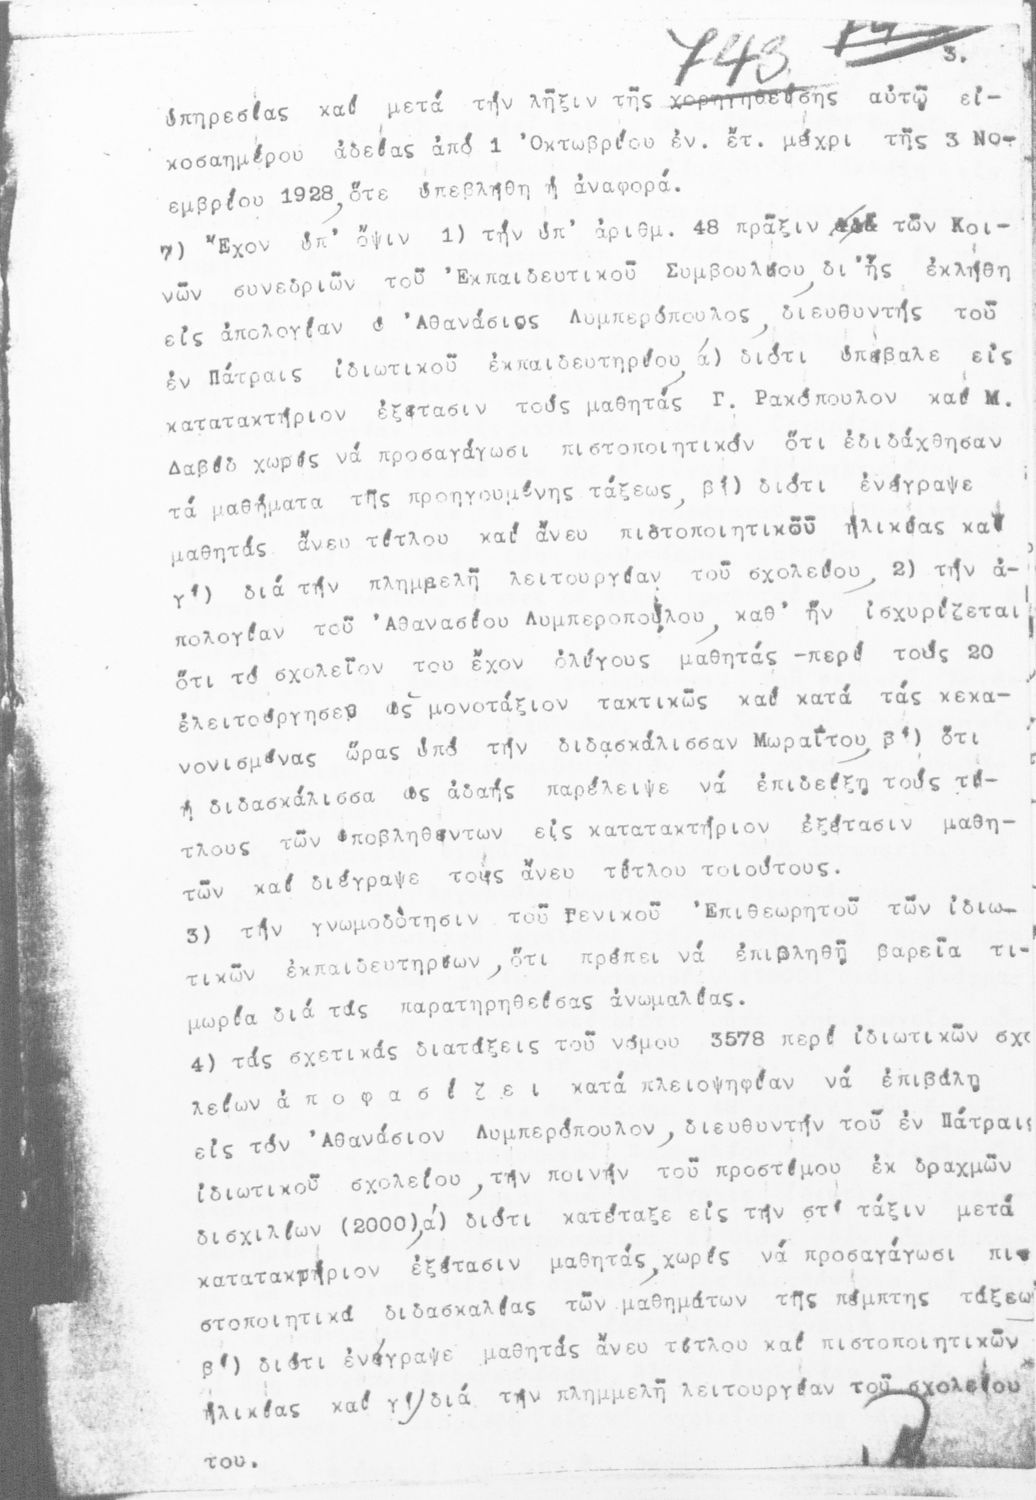 743
3.
ὑπηρεσίας καί μετά τήν λῆξιν τῆς χορηγηθείσης αὐτῷ εἰ-
κοσαημέρου ἀδείας ἀπό 1 Ὀκτωβρίου ἐν. ἔτ. μέχρι τῆς 3 Νο-
εμβρίου 1928, ὅτε ὑπεβλήθη ἡ ἀναφορά.
7) Ἔχον ὑπ' ὄψιν 1) τήν ὑπ' ἀριθμ. 48 πρᾶξιν τῶν Κοι-
νῶν συνεδριῶν τοῦ Ἐκπαιδευτικοῦ Συμβουλίου, δι' ἧς ἐκλήθη
εἰς ἀπολογίαν ὁ Ἀθανάσιος Λυμπερόπουλος, διευθυντής τοῦ
ἐν Πάτραις ἰδιωτικοῦ ἐκπαιδευτηρίου, ά) διότι ὑπέβαλε εἰς
κατατακτήριον ἐξέτασιν τούς μαθητάς Γ. Ρακόπουλον καί Μ.
Δαβίδ χωρίς νά προσαγάγωσι πιστοποιητικόν ὅτι ἐδιδάχθησαν
τά μαθήματα τῆς προηγουμένης τάξεως, β') διότι ἐνέγραψε
μαθητάς ἄνευ τίτλου καί ἄνευ πιστοποιητικοῦ ἡλικίας καί
γ') διά τήν πλημμελῆ λειτουργίαν τοῦ σχολείου, 2) τήν ἀ-
πολογίαν τοῦ Ἀθανασίου Λυμπεροπούλου, καθ' ἥν ἰσχυρίζεται
ὅτι τό σχολεῖον του ἔχον ὀλίγους μαθητάς -περί τούς 20
ἐλειτούργησεν ὡς μονοτάξιον τακτικῶς καί κατά τάς κεκα-
νονισμένας ὥρας ὑπό τήν διδασκάλισσαν Μωραΐτου, β') ὅτι
ἡ διδασκάλισσα ὡς ἀδαής παρέλειψε νά ἐπιδείξῃ τούς τί-
τλους τῶν ὑποβληθέντων εἰς κατατακτήριον ἐξέτασιν μαθη-
τῶν καί διέγραψε τούς ἄνευ τίτλου τοιούτους.
3) τήν γνωμοδότησιν τοῦ Γενικοῦ Ἐπιθεωρητοῦ τῶν ἰδιω-
τικῶν ἐκπαιδευτηρίων, ὅτι πρέπει νά ἐπιβληθῇ βαρεῖα τι-
μωρία διά τάς παρατηρηθείσας ἀνωμαλίας.
4) τάς σχετικάς διατάξεις τοῦ νόμου 3578 περί ἰδιωτικῶν σχο
λείων ἀ π ο φ α σ ί ζ ε ι κατά πλειοψηφίαν νά ἐπιβάλῃ
εἰς τόν Ἀθανάσιον Λυμπερόπουλον, διευθυντήν τοῦ ἐν Πάτραις
ἰδιωτικοῦ σχολείου, τήν ποινήν τοῦ προστίμου ἐκ δραχμῶν
δισχιλίων (2000), ά) διότι κατέταξε εἰς τήν στ' τάξιν μετά
κατατακτήριον ἐξέτασιν μαθητάς, χωρίς νά προσαγάγωσι πι-
στοποιητικά διδασκαλίας τῶν μαθημάτων τῆς πέμπτης τάξεω
β') διότι ἐνέγραψε μαθητάς ἄνευ τίτλου καί πιστοποιητικῶν
ἡλικίας καί γ') διά τήν πλημμελῆ λειτουργίαν τοῦ σχολείου
του.